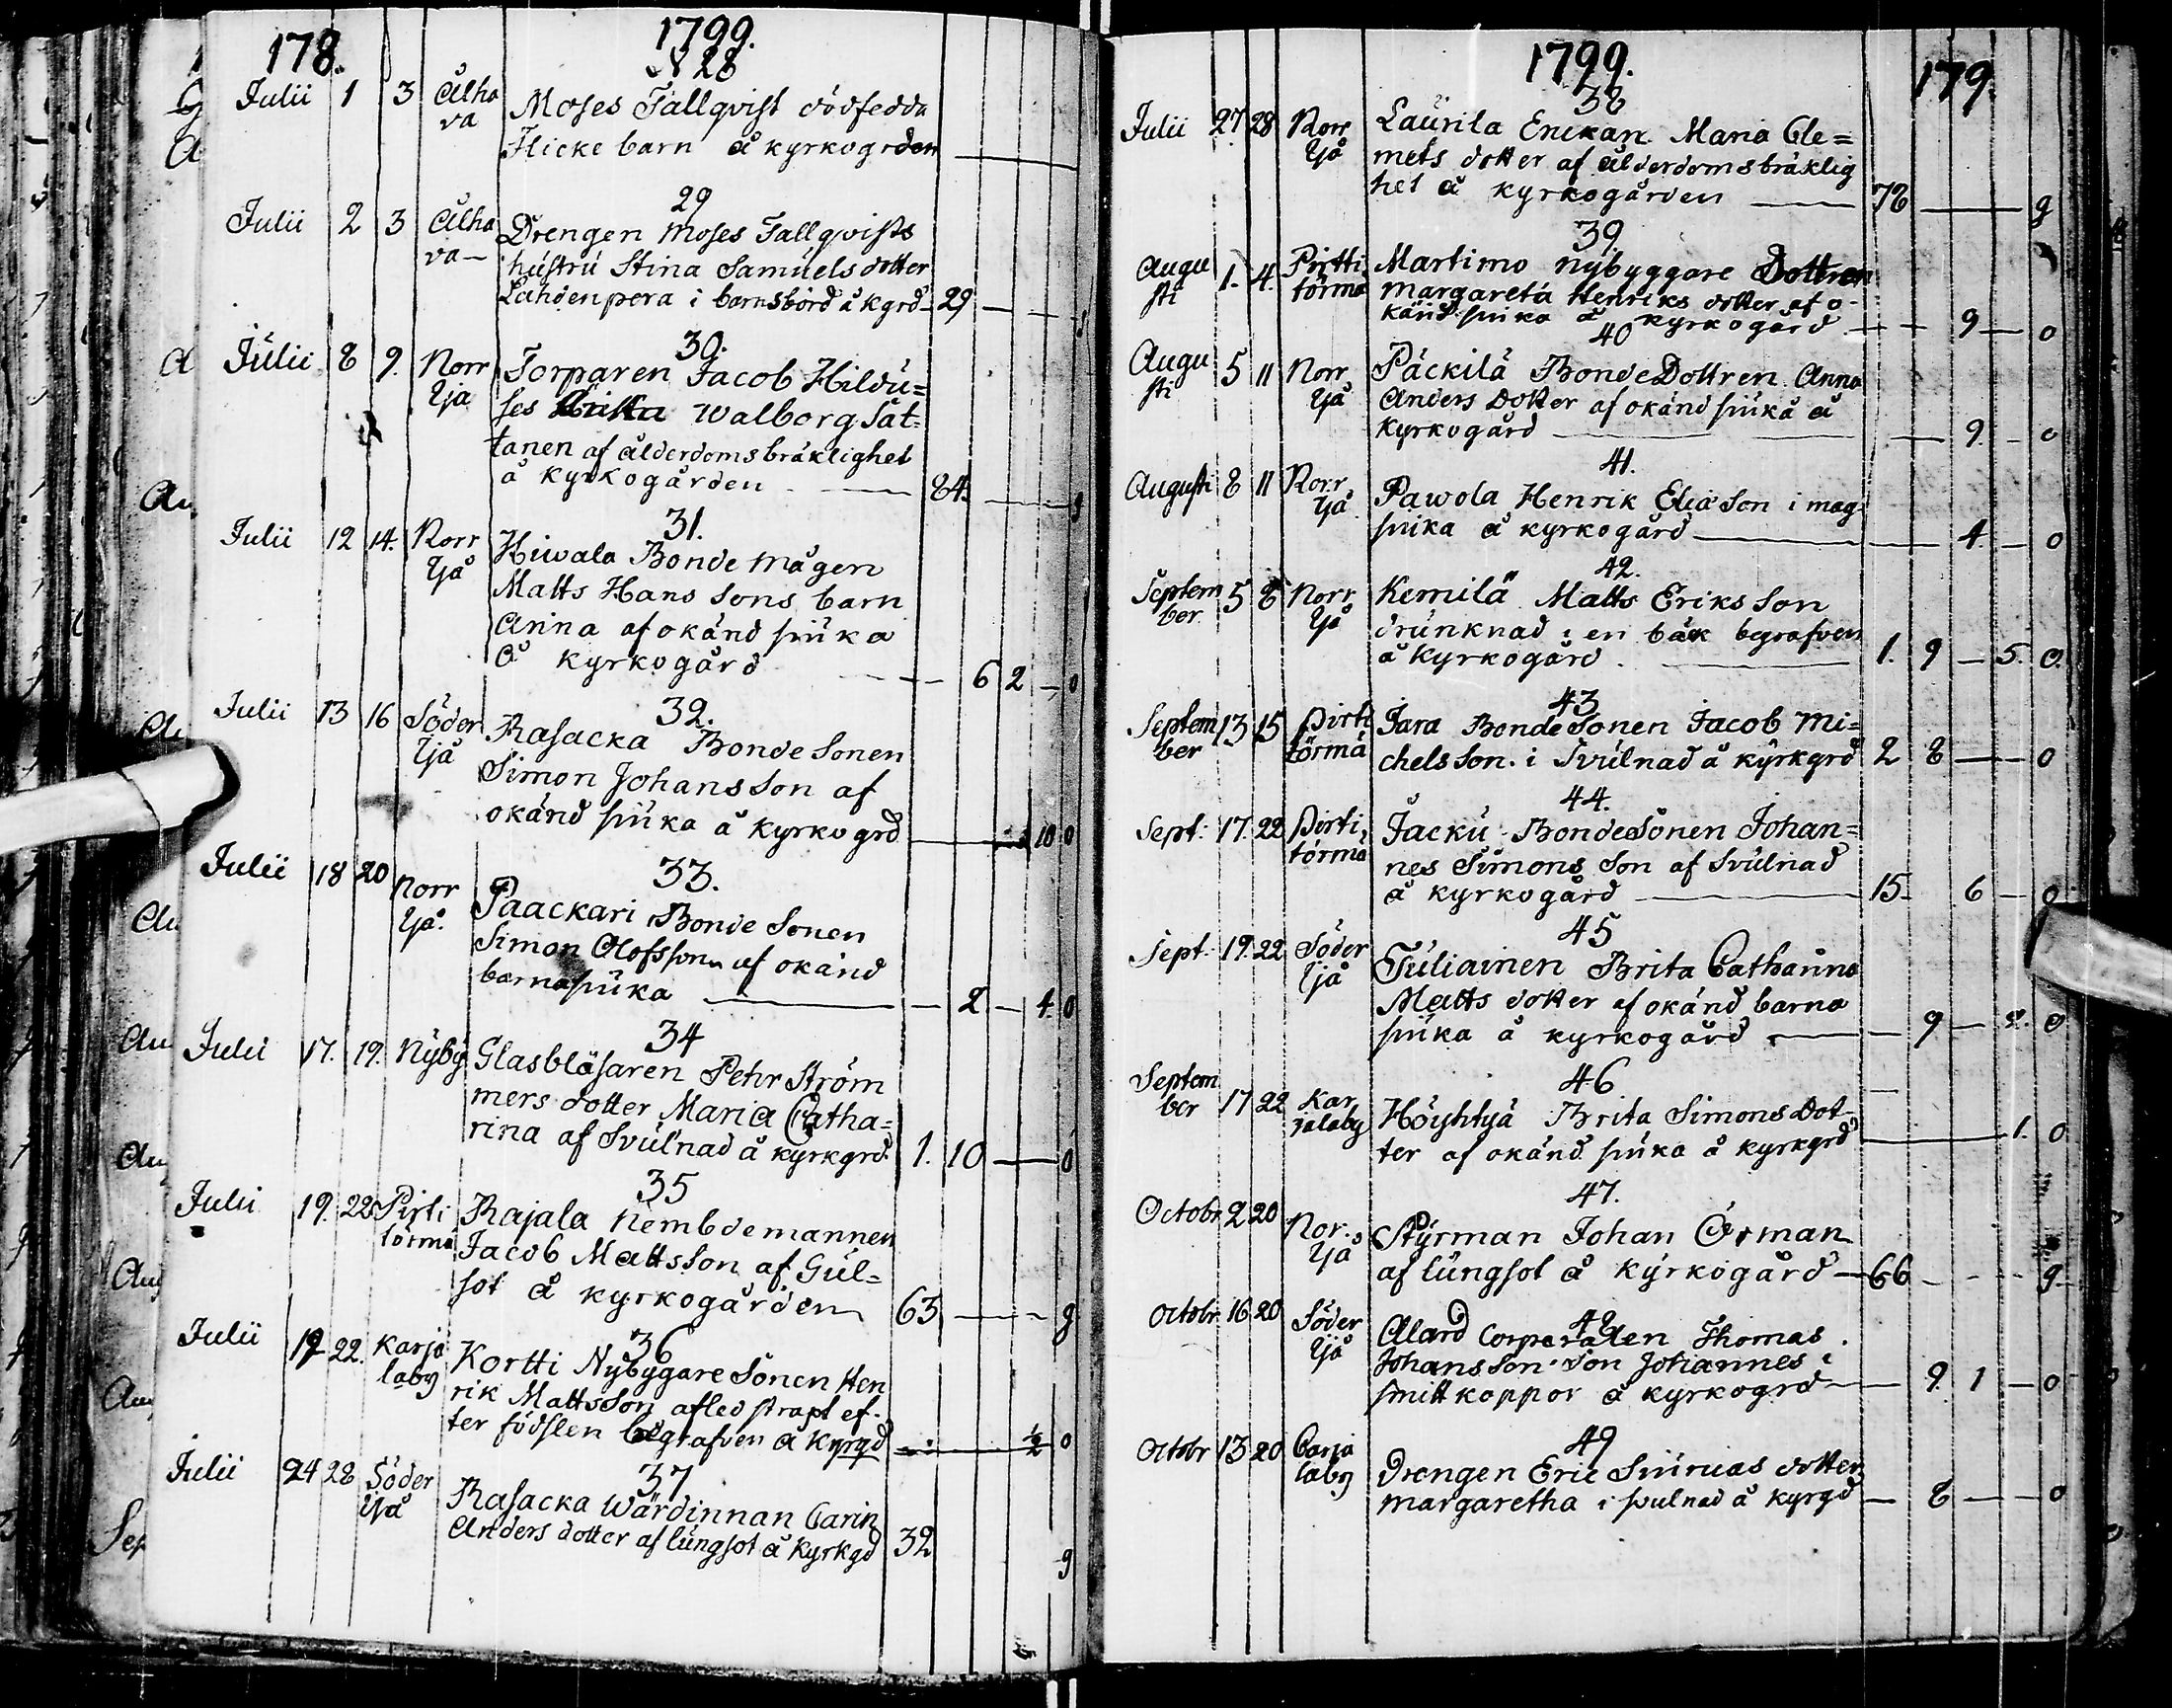 178.
1799.
N 28
Julii 1 3 Alho Moses Fallqvist dödfedda
va Flicke barn å kyrkogrden
29
Julii 2 3 Alho Drengen Moses Fallqvists
va— hustru Stina Samuels dotter
Lahdenpera i barnsbörd å kgrd 29
30.
Julii 8 9. Norr Torparen Jacob Hildu=
Ijå ses Walborg Sat=
tanen af ålderdomsbräklighet
å kyrkogården 84. g
31.
Julii 12 14. Norr Hiwala Bonde mågen
Ijå Matts Hans Sons barn
Anna af okänd siuka
å kyrkogård 6 2 0
32.
Julii 13 16 Söder Rasacka Bonde Sonen
Ijå Simon Johansson af
okänd siuka å kyrkogrd 10 0
33.
Julii 18 20 Norr Paackari Bonde Sonen
Ijå. Simon Olofsson af okänd
barnasiuka 2 4. 0
34
Julii 17. 19. Nyby Glasblåsaren Pehr Ström
mers dotter Maria Catha=
rina af Svulnad å kyrkgrd. 1. 10 0
35
Julii 19. 22 Pirti Rajala Nembdemannen
törmä Jacob Mattsson af Gul=
sot å kyrkogården 63 g
36
Julii 19 22. Karja Kortti Nybyggare Sonen Hen
laby rik Mattsson afled strapt ef-
ter födslen begrafven å Kyrgd ½ 0
37
Julii 24 28 Söder Rasacka Wärdinnan Carin
Ijå Anders dotter af lungsot å Kyrkgd 32 g
1799.
179.
38
Julii 27 28 Norr Laurila Enckan Maria Cle=
Ijå mets dotter af ålderdomsbräklig
het å kyrkogården 78 g
39.
Augu 1. 4. Pirtti Martimo nybyggare Dottren
sti törmä Margareta Henriks dotter af o-
känd siuka å kyrkogård 9 0
40
Augu 5 11 Norr Päckilä Bonde Dottren Anna
sti Ijå Anders Dotter af okänd siuka å
kyrkogård 9. 0
41.
Augusti 8 11 Norr Pawola Henrik Elia Son i mag
Ijå siuka å kyrkogård 4. 0
42.
Septem 5 8 Norr Kemilä Matts Eriks Son
ber Ijå drunknad i en bäck begrafven
å kyrkogård. 1. 9 5. 0
43
Septem 13 15 Pirti Jara Bonde Sonen Jacob Mi=
ber törmä chels Son. i Svulnad å kyrkgrd 2 8 0
44.
Sept: 17. 22 Pirti Jacku Bonde Sonen Johan=
törmä nes Simons Son af Svulnad
å kyrkogård 15 6 0
45
Sept: 19. 22 Söder Tuliainen Brita Catharina
Ijå Matts dotter af okänd barna
siuka å kyrkogård 9 0
46
Septem
ber 17 22 Kar Höyhtyä Brita Simons Dot-
jalaby ter af okänd siuka å kyrkgrd 1. 0
47.
Octobr. 2 20 Nor. Styrman Johan Örman
Ijå af lungsot å kyrkogård 66 g
48
Octobr. 16 20 Söder Alard Corporalen Thomas
Ijå Johansson Son Johannes i
smittkoppor å kyrkogrd 9. 1 0
49
Octobr 13 20 Carja Drengen Eric Siuruas dotter
laby margaretha i svulnad å kyrgd 8 0